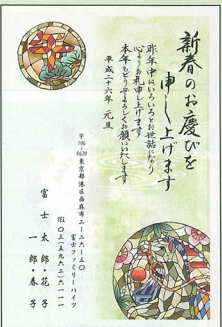 新春のお慶びを
申し上げます
昨年中はいろいろとお世話になり
心よりお礼申し上げます
本年もどうぞよろしくお願いいたします
平成二十六年 元旦
〒106-8620
東京都港区西麻布二-二六-三〇
富士ファミリーハイツ
TEL 〇三(五九六二)六一一一
富士 太郎・花子
一郎・春子